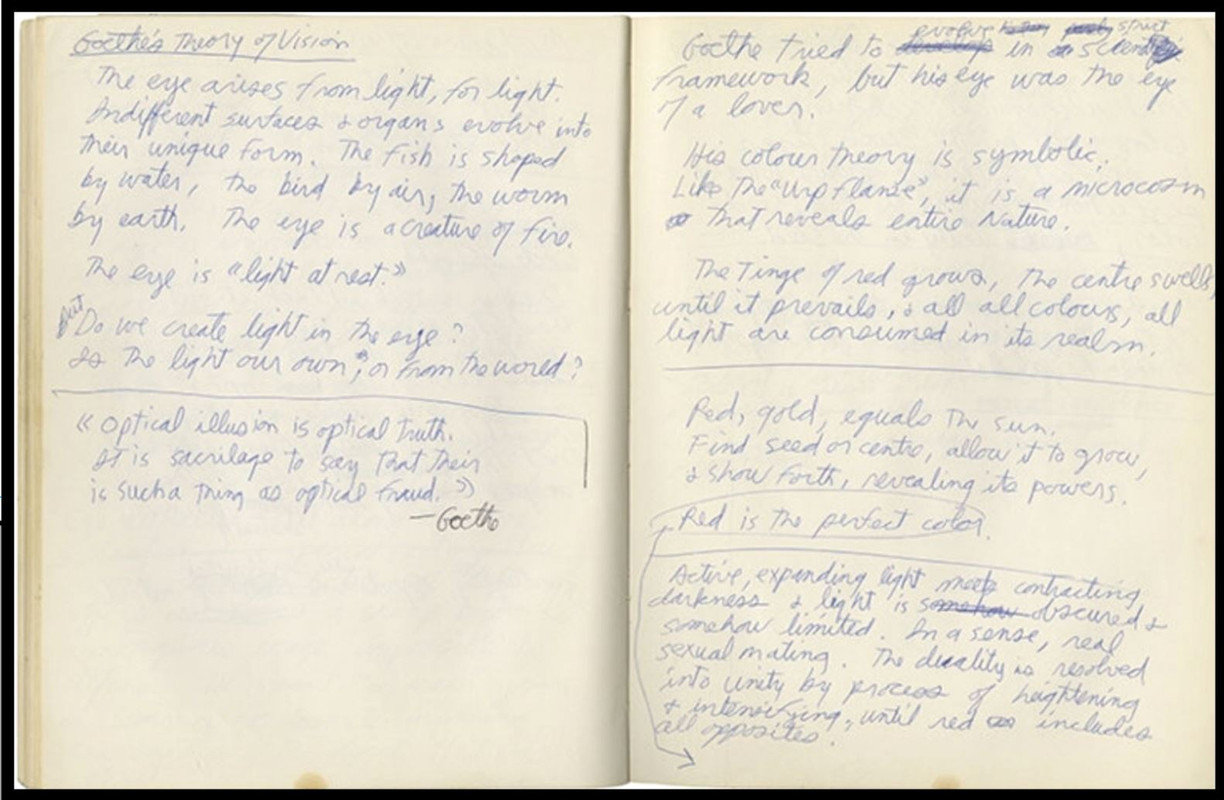 Goethe's Theory of Vision
The eye arises from light, for light.
Indifferent surfaces & organs evolve into
their unique form. The fish is shaped
by water, the bird by air, the worm
by earth. The eye is a creature of fire.
The eye is "light at rest."
but
Do we create light in the eye?
Is the light our own, or from the world?
« Optical illusion is optical truth.
It is sacrilage to say that their
is such a thing as optical fraud. »
— Goethe
evolve strict
Goethe tried to develop in a
framework, but his eye was the eye
of a lover.
His colour theory is symbolic.
Like the "Urpflanze", it is a microcosm
that reveals entire Nature.
The tinge of red grows, the centre swells,
until it prevails, & all all colours, all
light are consumed in its realm.
Red, gold, equals the sun.
Find seed or centre, allow it to grow,
& show forth, revealing its powers.
Red is the perfect color.
Active, expanding light meets contracting
darkness & light is somehow obscured &
somehow limited. In a sense, real
sexual mating. The duality is resolved
into unity by process of heightening
& intensifying, until red includes
all opposites.